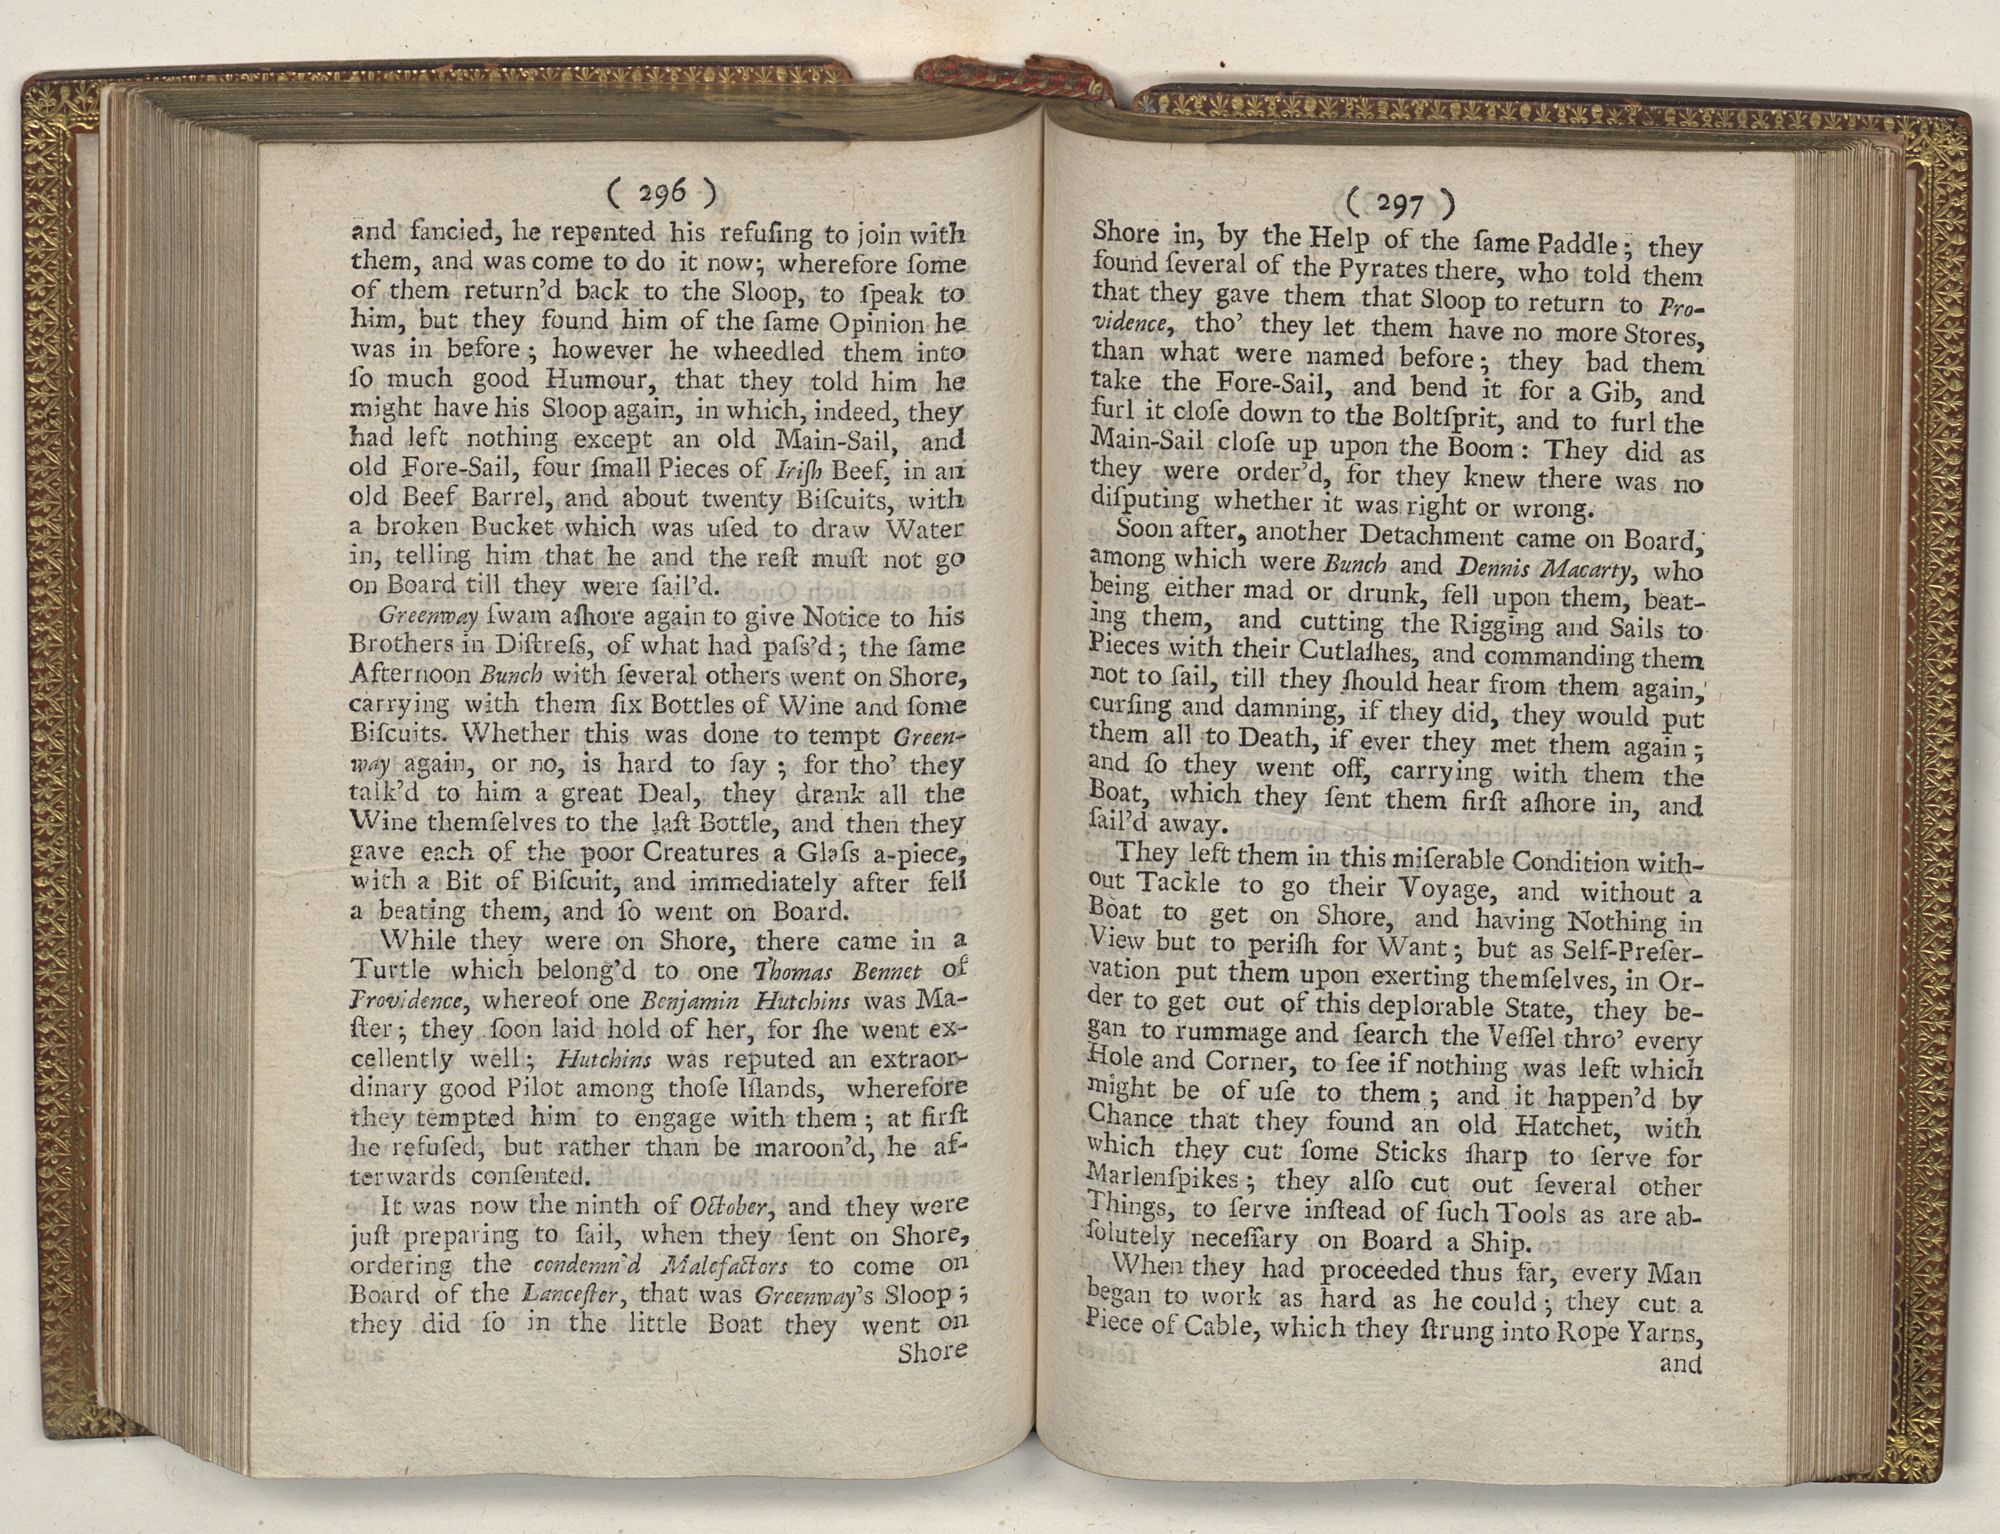 ( 296 )
and fancied, he repented his refuſing to join with
them, and was come to do it now; wherefore ſome
of them return'd back to the Sloop, to ſpeak to
him, but they found him of the ſame Opinion he
was in before; however he wheedled them into
ſo much good Humour, that they told him he
might have his Sloop again, in which, indeed, they
had left nothing except an old Main-Sail, and
old Fore-Sail, four ſmall Pieces of Iriſh Beef, in an
old Beef Barrel, and about twenty Biſcuits, with
a broken Bucket which was uſed to draw Water
in, telling him that he and the reſt muſt not go
on Board till they were ſail'd.
Greenway ſwam aſhore again to give Notice to his
Brothers in Diſtreſs, of what had paſs'd; the ſame
Afternoon Bunch with ſeveral others went on Shore,
carrying with them ſix Bottles of Wine and ſome
Biſcuits. Whether this was done to tempt Green-
way again, or no, is hard to ſay; for tho' they
talk'd to him a great Deal, they drank all the
Wine themſelves to the laſt Bottle, and then they
gave each of the poor Creatures a Glaſs a-piece,
with a Bit of Biſcuit, and immediately after fell
a beating them, and ſo went on Board.
While they were on Shore, there came in a
Turtle which belong'd to one Thomas Bennet of
Providence, whereof one Benjamin Hutchins was Ma-
ſter; they ſoon laid hold of her, for ſhe went ex-
cellently well; Hutchins was reputed an extraor-
dinary good Pilot among thoſe Iſlands, wherefore
they tempted him to engage with them; at firſt
he refuſed, but rather than be maroon'd, he af-
terwards conſented.
It was now the ninth of October, and they were
juſt preparing to ſail, when they ſent on Shore,
ordering the condemn'd Malefactors to come on
Board of the Lanceſter, that was Greenway's Sloop;
they did ſo in the little Boat they went on
Shore
( 297 )
Shore in, by the Help of the ſame Paddle; they
found ſeveral of the Pyrates there, who told them
that they gave them that Sloop to return to Pro-
vidence, tho' they let them have no more Stores,
than what were named before; they bad them
take the Fore-Sail, and bend it for a Gib, and
furl it cloſe down to the Boltſprit, and to furl the
Main-Sail cloſe up upon the Boom: They did as
they were order'd, for they knew there was no
diſputing whether it was right or wrong.
Soon after, another Detachment came on Board,
among which were Bunch and Dennis Macarty, who
being either mad or drunk, fell upon them, beat-
ing them, and cutting the Rigging and Sails to
Pieces with their Cutlaſhes, and commanding them
not to ſail, till they ſhould hear from them again,
curſing and damning, if they did, they would put
them all to Death, if ever they met them again;
and ſo they went off, carrying with them the
Boat, which they ſent them firſt aſhore in, and
ſail'd away.
They left them in this miſerable Condition with-
out Tackle to go their Voyage, and without a
Boat to get on Shore, and having Nothing in
View but to periſh for Want; but as Self-Preſer-
vation put them upon exerting themſelves, in Or-
der to get out of this deplorable State, they be-
gan to rummage and ſearch the Veſſel thro' every
Hole and Corner, to ſee if nothing was left which
might be of uſe to them; and it happen'd by
Chance that they found an old Hatchet, with
which they cut ſome Sticks ſharp to ſerve for
Marlenſpikes; they alſo cut out ſeveral other
Things, to ſerve inſtead of ſuch Tools as are ab-
ſolutely neceſſary on Board a Ship.
When they had proceeded thus far, every Man
began to work as hard as he could; they cut a
Piece of Cable, which they ſtrung into Rope Yarns,
and